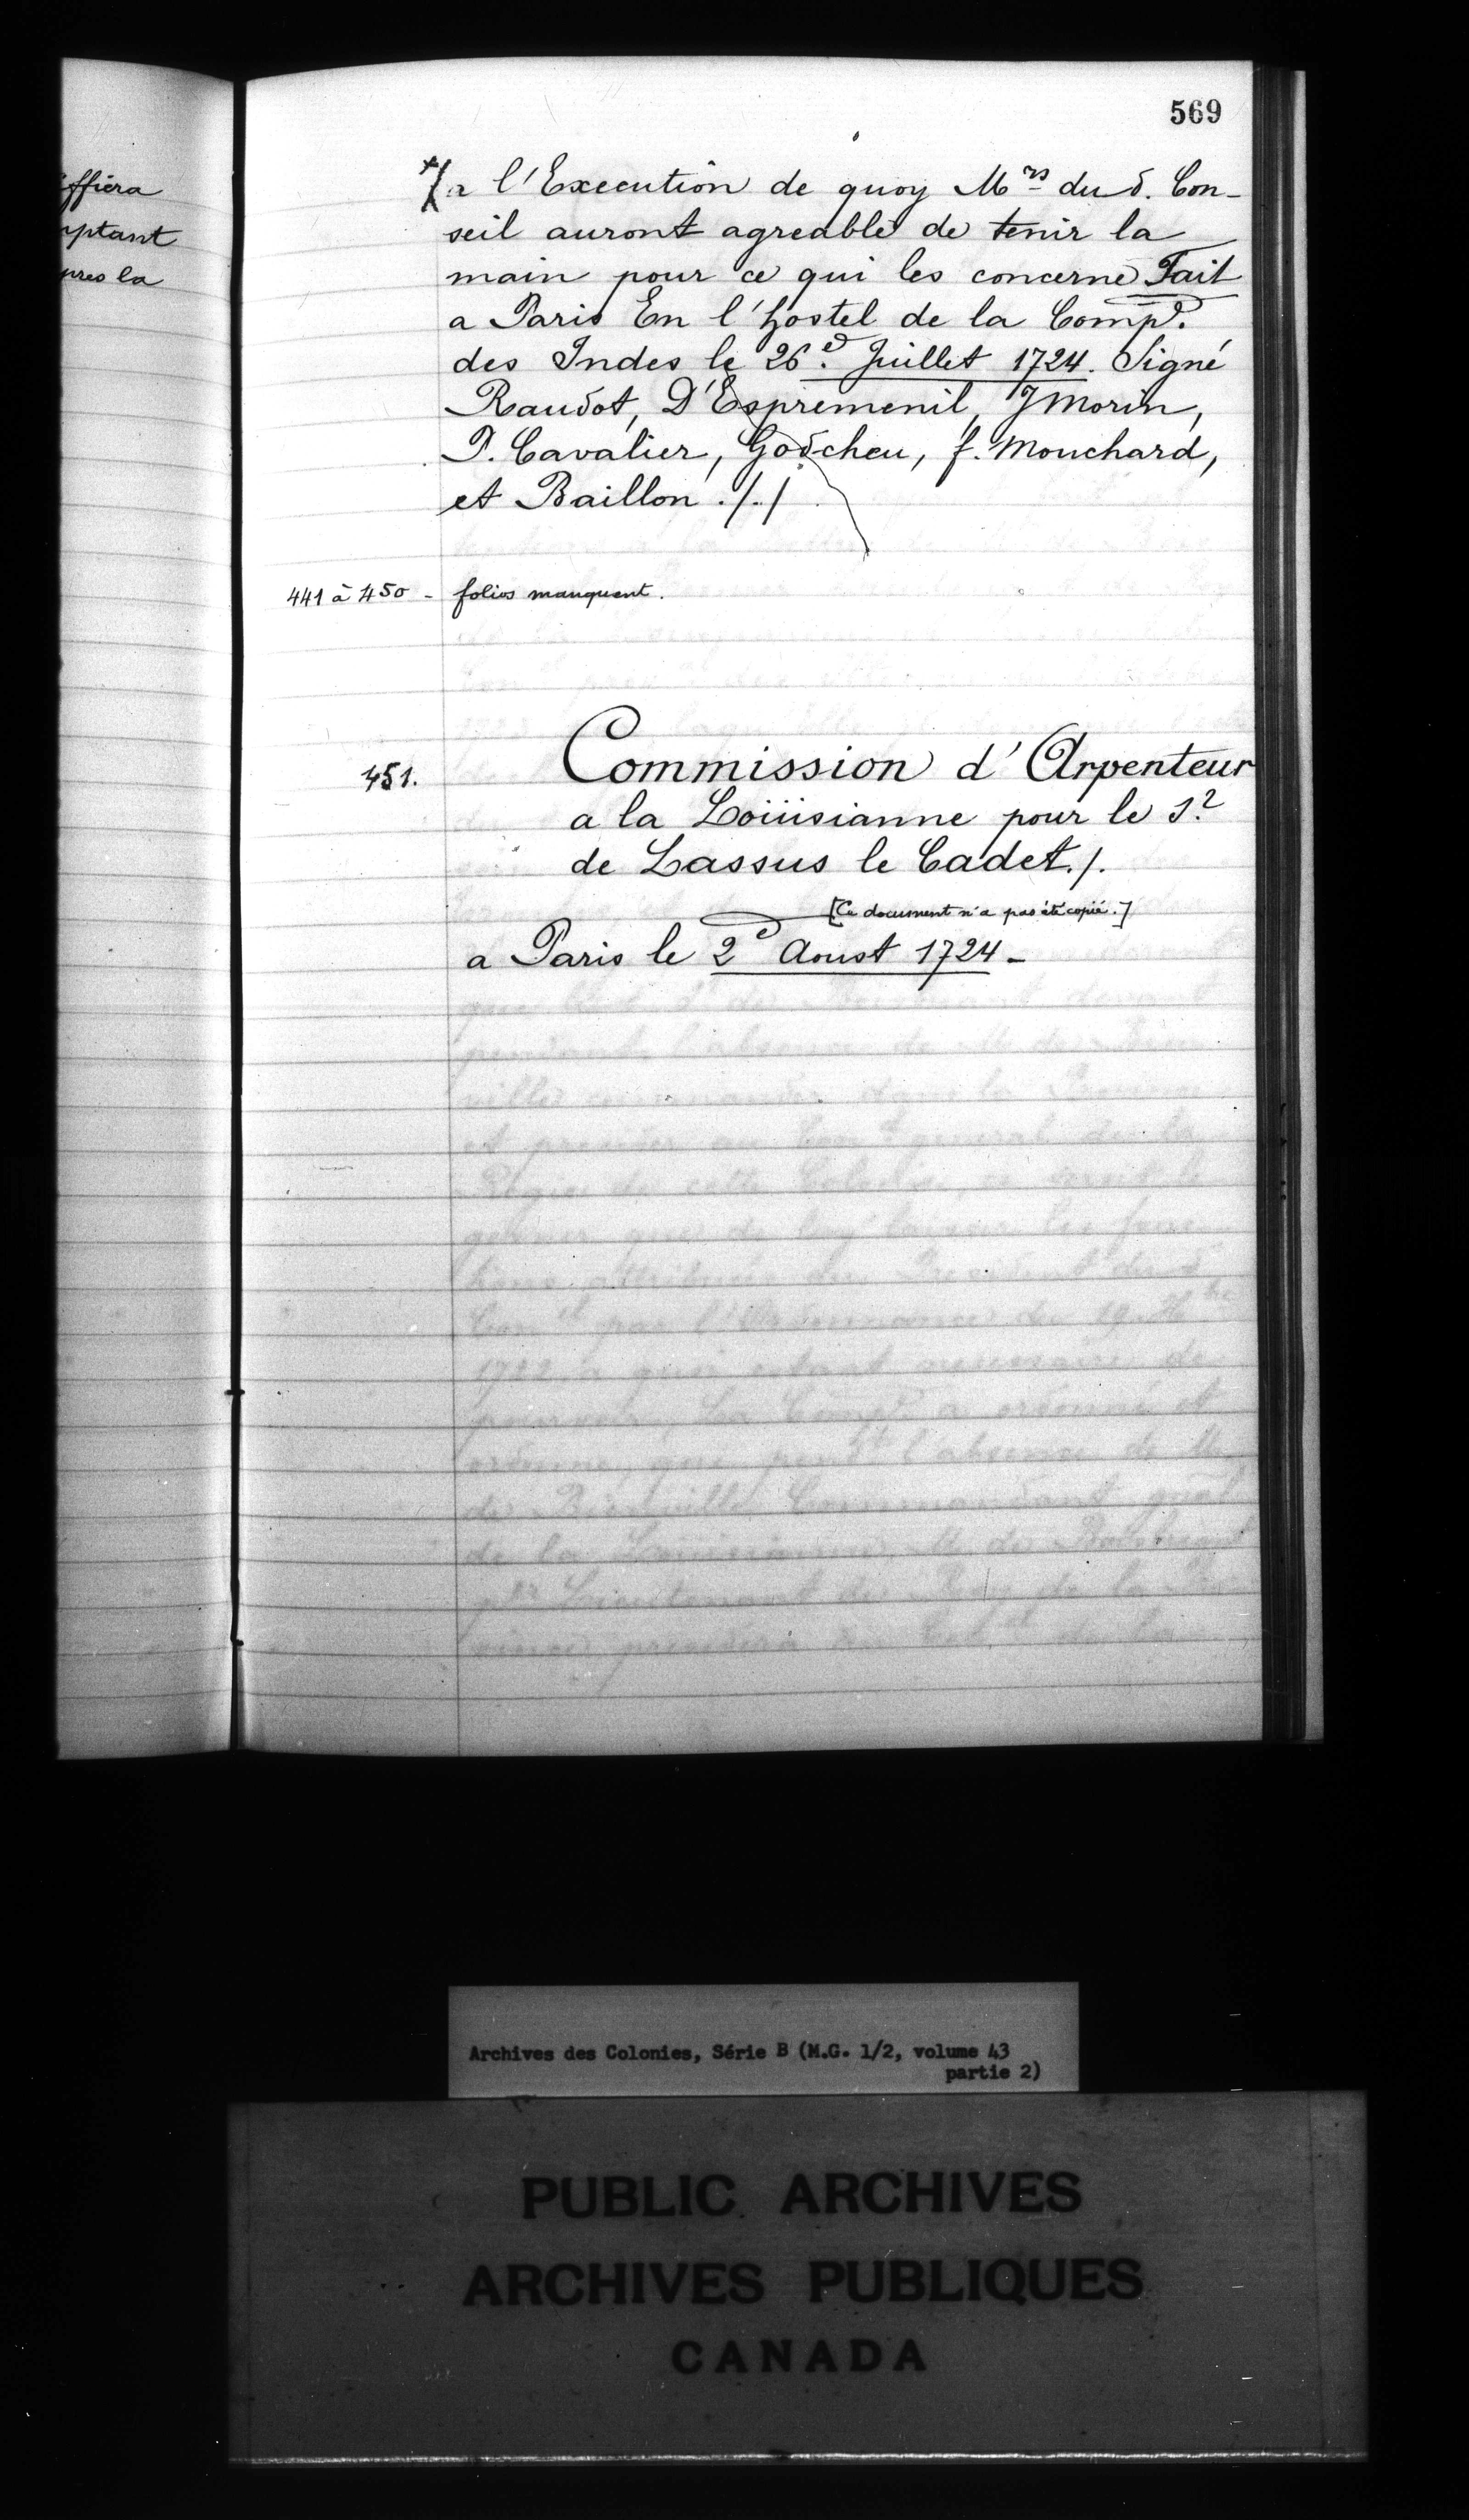 569
iffiera
mptant
pres la
a l'Execution de quoy M.rs du d. Con-
seil auront agreable de tenir la
main pour ce qui les concerne Fait
a Paris En l'hostel de la Comp.e
des Indes le 26.e Juillet 1724. Signé
Raudot, D'Espremenil, J Morin,
P. Cavalier, Godeheu, f. Mouchard,
et Baillon ./.
441 à 450 - folios manquent.
451.
Commission d'Arpenteur
a la Loüisianne pour le S.r
de Lassus le Cadet ./.
[Ce document n'a pas été copié.]
a Paris le 2e Aoust 1724 -
Archives des Colonies, Série B (M.G. 1/2, volume 43
partie 2)
PUBLIC ARCHIVES
ARCHIVES PUBLIQUES
CANADA